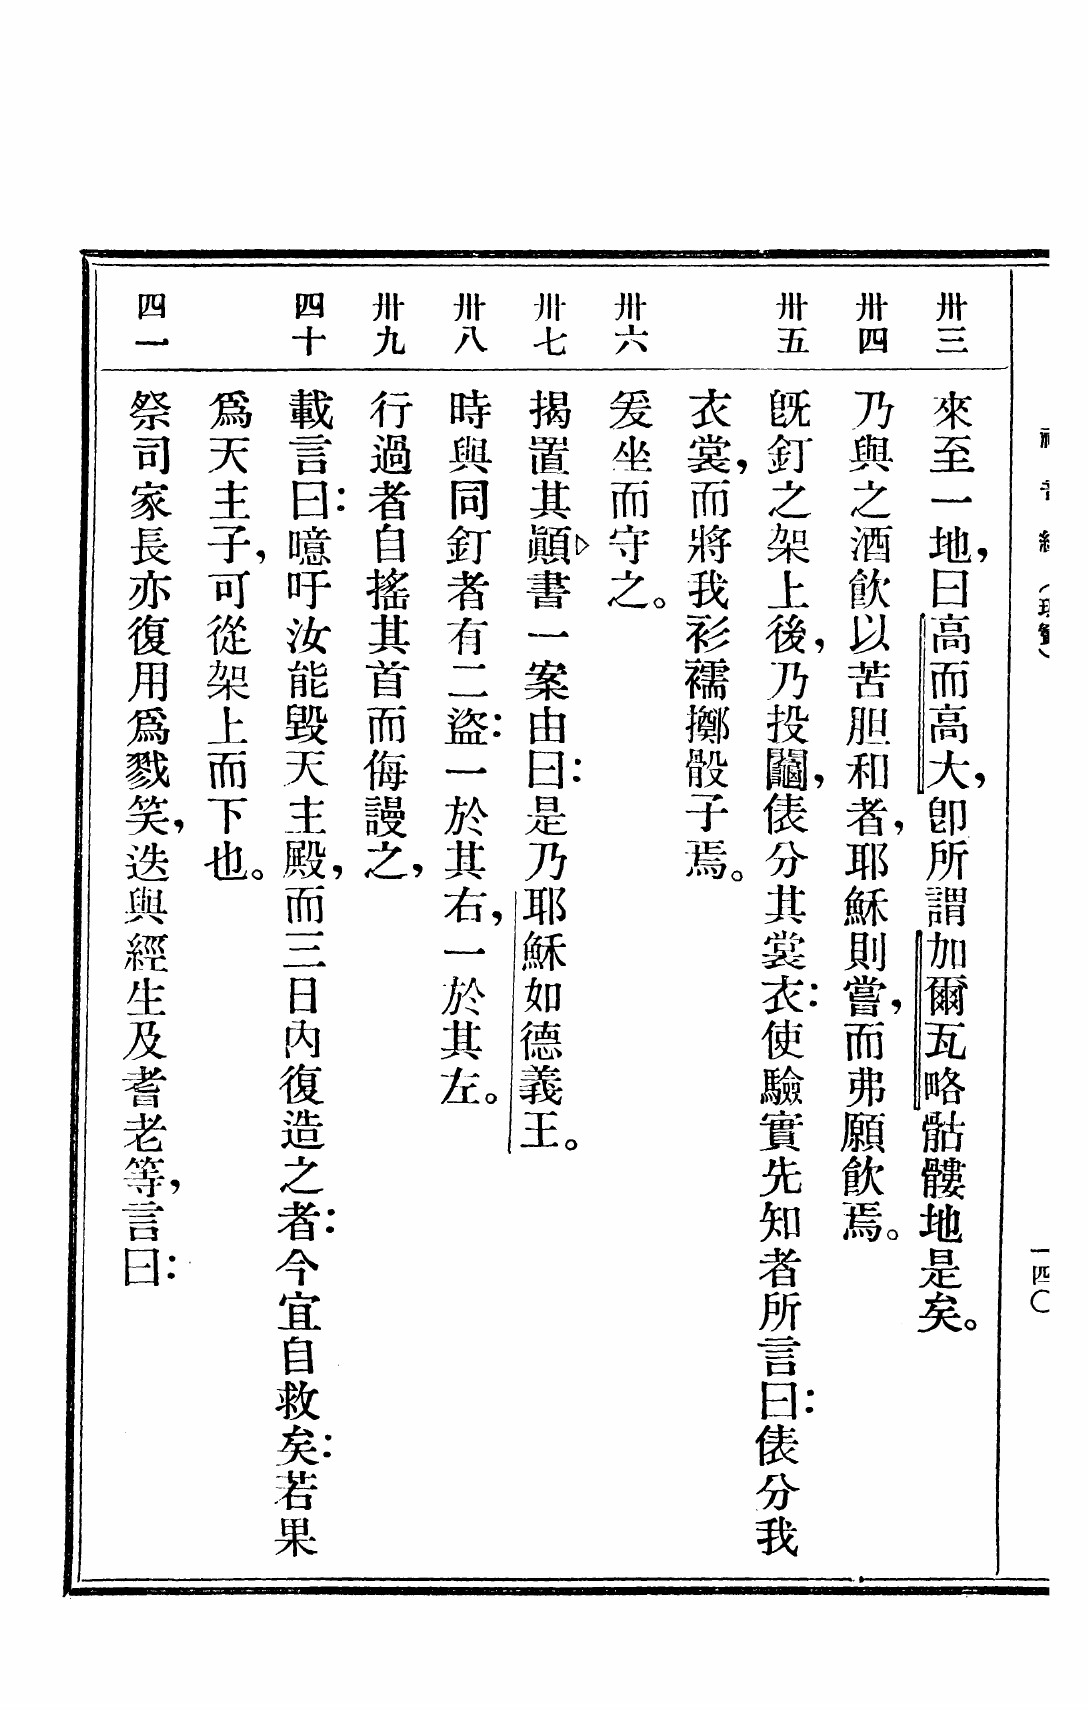 一四〇
卅三 來至一地，曰高而高大，卽所謂加爾瓦略骷髏地是矣。
卅四 乃與之酒飮以苦胆和者，耶穌則嘗，而弗願飮焉。
卅五 旣釘之架上後，乃投鬮，俵分其裳衣：使驗實先知者所言曰：俵分我
衣裳，而將我衫襦擲骰子焉。
卅六 爰坐而守之。
卅七 揭置其顚書一案由曰：是乃耶穌如德義王。
卅八 時與同釘者有二盜：一於其右，一於其左。
卅九 行過者自搖其首而侮謾之，
四十 載言曰：噫吁汝能毀天主殿，而三日內復造之者：今宜自救矣：若果
爲天主子，可從架上而下也。
四一 祭司家長亦復用爲戮笑，迭與經生及耆老等，言曰：